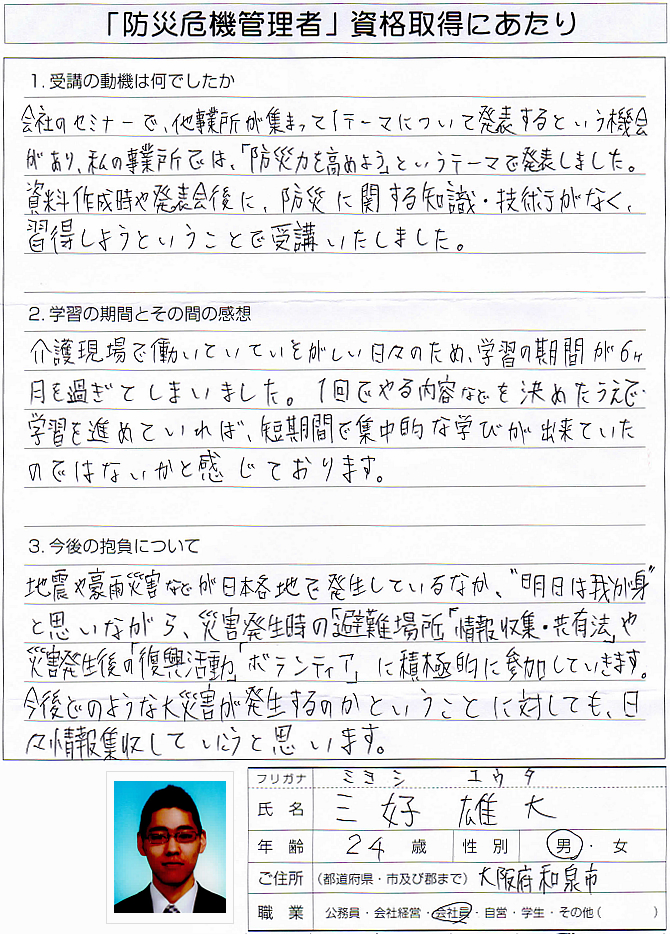 「防災危機管理者」資格取得にあたり
1. 受講の動機は何でしたか
会社のセミナーで、他事業所が集まって1テーマについて発表するという機会
があり、私の事業所では、「防災力を高めよう」というテーマで発表しました。
資料作成時や発表会後に、防災に関する知識・技術がなく、
習得しようということで受講いたしました。
2. 学習の期間とその間の感想
介護現場で働いていていそがしい日々のため、学習の期間が6ヶ
月を過ぎてしまいました。1回でやる内容などを決めたうえで
学習を進めていれば、短期間で集中的な学びが出来ていた
のではないかと感じております。
3. 今後の抱負について
地震や豪雨災害などが日本各地で発生しているなか、"明日は我が身"
と思いながら、災害発生時の「避難場所」「情報収集・共有法」や
災害発生後の「復興活動」「ボランティア」に積極的に参加していきます。
今後どのような大災害が発生するのかということに対しても、日
々情報集収していこうと思います。
フリガナ ミヨシ ユウタ
氏名 三好 雄大
年齢 24歳 性別 男・女
ご住所 (都道府県・市及び郡まで) 大阪府和泉市
職業 公務員・会社経営・会社員・自営・学生・その他( )